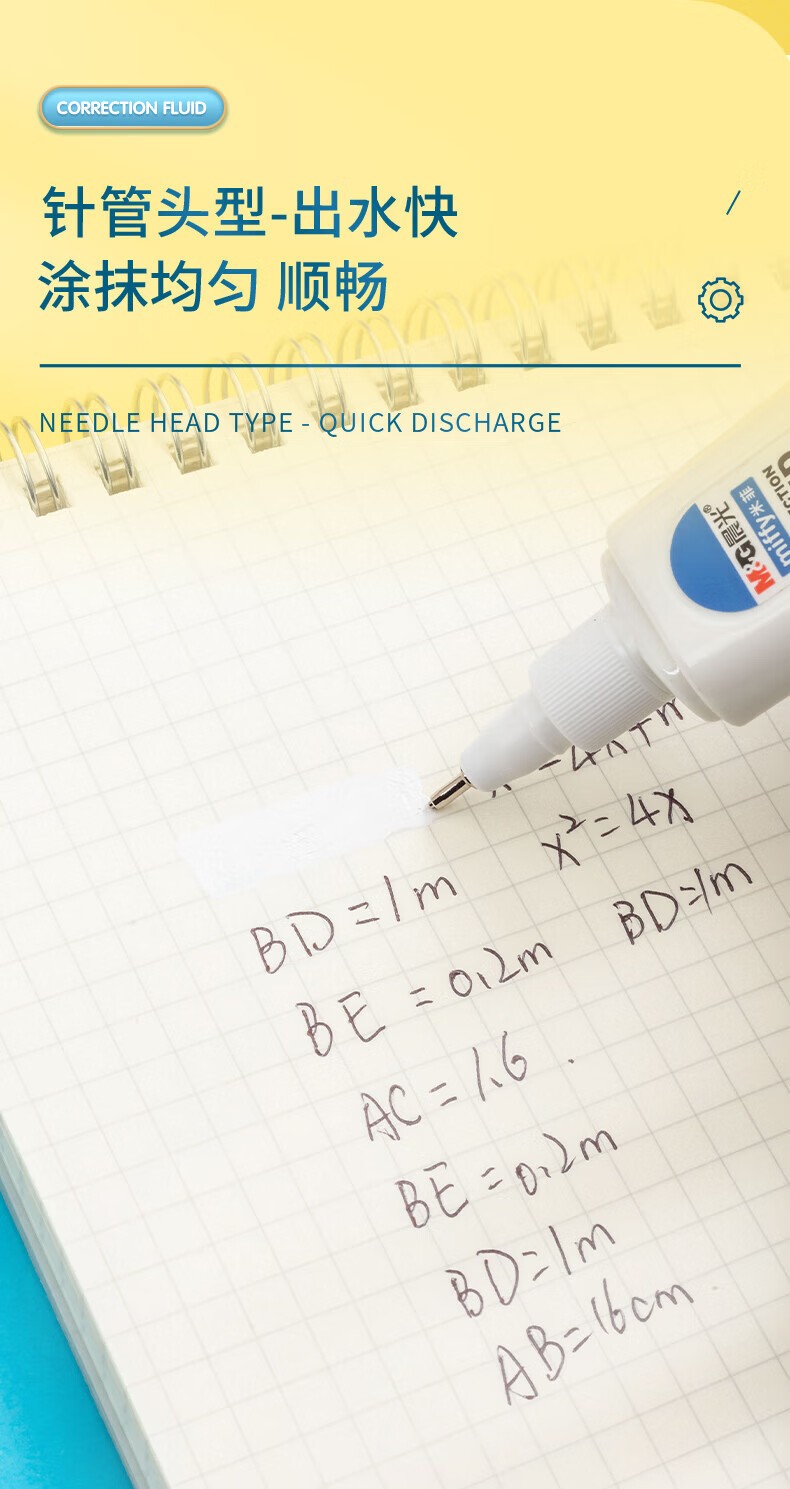 CORRECTION FLUID
针管头型-出水快
涂抹均匀 顺畅
NEEDLE HEAD TYPE - QUICK DISCHARGE
M&G晨光®
miffy米菲
x²=4x
BD=1m
BD=1m
BE=0.2m
AC=1.6.
BE=0.2m
BD=1m
AB=16cm